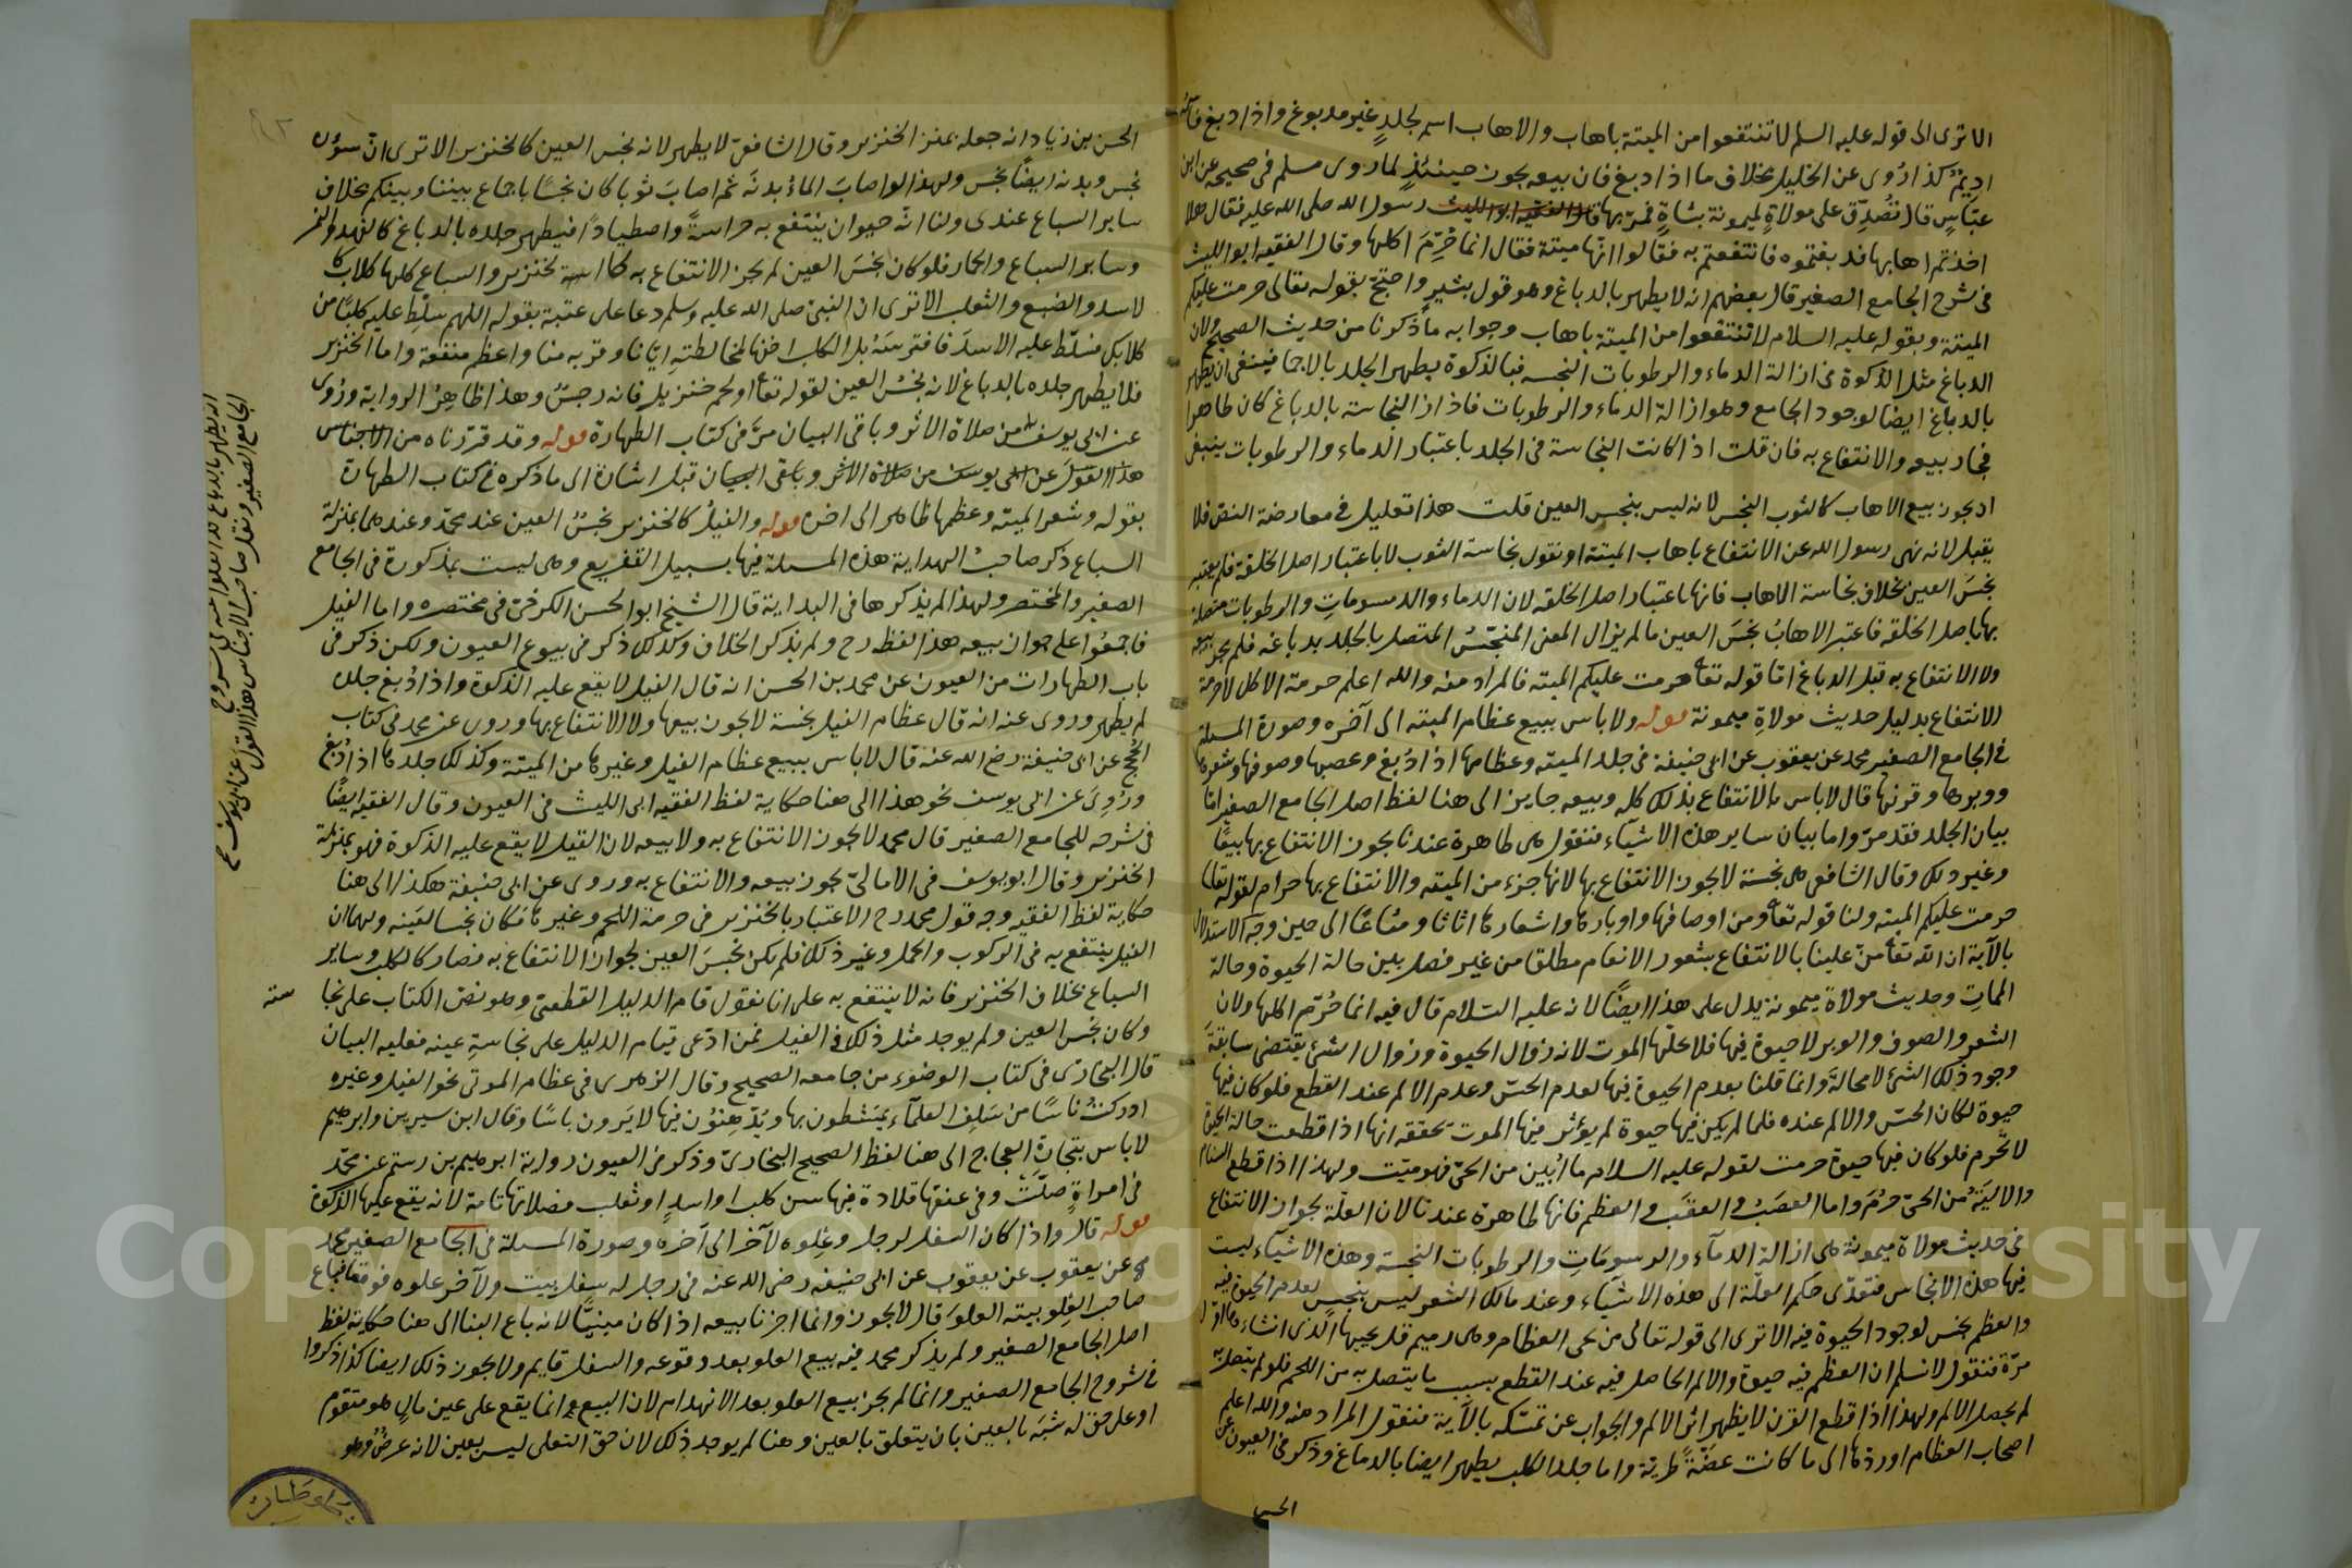 الا ترى الى قوله عليه السلم لا تنتفعوا من الميتة باهاب والاهاب اسم لجلدٍ غير مدبوغ واذا دبغ فانه
اديمٌ كذا روى عن الخليل بخلاف ما اذا دبغ فان بيعه يجوز حينئذٍ لما روى مسلم فى صحيحه عن ابن
عبّاسٍ قال تُصُدِّق على مولاةٍ لميمونة بشاةٍ فمرّ بها قال الفقيه ابو الليث رسول الله صلى الله عليه فقال هلا
اخذتم اهابها فدبغتموه فانتفعتم به فقالوا انّها ميتة فقال انما حُرِّمَ اكلها وقال الفقيه ابو الليث
فى شرح الجامع الصغير قال بعضهم انه لا يطهر بالدباغ وهو قول بشرٍ واحتج بقوله تعالى حرمت عليكم
الميتة وبقوله عليه السلام لا تنتفعوا من الميتة باهاب وجوابه ما ذكرنا من حديث الصحيح ولان
الدباغ مثل الذكوة فى ازالة الدماء والرطوبات النجسه فبالذكوة يطهر الجلد بالاجما فينبغى ان يطهر
بالدباغ ايضا لوجود الجامع وهو ازالة الدماء والرطوبات فاذا زال النجاسة بالدباغ كان طاهرا
فجاز بيعه والانتفاع به فان قلت اذا كانت النجاسة فى الجلد باعتبار الدماء والرطوبات ينبغى
ان يجوز بيع الاهاب كالثوب النجس لانه ليس بنجس العين قلت هذا تعليل فى معارضة النص فلا
يقبل لانه نهى رسول الله عن الانتفاع باهاب الميتة او نقول نجاسة الثوب لا باعتبار اصل الخلقة فلم يعتبر
نجسَ العين بخلاف نجاسة الاهاب فانها باعتبار اصل الخلقه لان الدماء والدسوماتِ والرطوبات متصلة
بها باصل الخلقه فاعتبر الاهابُ نجسَ العين ما لم يزل المعنى المنجّسُ المتصل بالجلد بدباغه فلم يجز بيعه
ولا الانتفاع به قبل الدباغ امّا قوله تعا حرمت عليكم الميته فالمراد منه والله اعلم حرمة الاكل لا حرمة
الانتفاع بدليل حديث مولاةِ ميمونة قوله ولا باس ببيع عظام الميته الى آخره وصورة المسلة
فى الجامع الصغير محمد عن يعقوب عن ابى حنيفة فى جلد الميته وعظامها اذا دُبغ وعصبها وصوفها وشعرها
ووبرها وقرنها قال لا باس بالانتفاع بذلك كله وبيعه جايز الى هنا لفظ اصل الجامع الصغير امّا
بيان الجلد فقد مرّ واما بيان ساير هذه الاشيآء فنقول هى طاهرة عندنا يجوز الانتفاع بها بيعًا
وغير ذلك وقال الشافعى هى نجسة لا يجوز الانتفاع بها لانها جزء من الميته والانتفاع بها حرام لقوله تعا
حرمت عليكم الميته ولنا قوله تعا ومن اوصافها واوبارها واشعارها اثاثا ومتاعًا الى حين وجه الاستدلال
بالآية ان الله تعا منّ علينا بالانتفاع بشعور الانعام مطلقا من غير فصل بين حالة الحيوة وحالة
المماتِ وحديث مولاة ميمونة يدل على هذا ايضًا لانه عليه السّلام قال فيه انما حُرّم اكلها ولان
الشعر والصوف والوبر لا حيوة فيها فلا يحلّها الموت لانه زوال الحيوة وزوال الشئ يقتضى سابقةَ
وجود ذلك الشئ لا محالةَ وانما قلنا بعدم الحيوة فيها لعدم الحسّ وعدم الالم عند القطع فلو كان فيها
حيوة لكان الحسّ والالم عنده فلما لم يكن فيها حيوة لم يؤثر فيها الموت يحققه انها اذا قطعت حالة الحيوة
لا تحرم فلو كان فيها حيوة حرمت لقوله عليه السلام ما اُبين من الحىّ فهو ميّت ولهذا اذا قطع السنام
والاليَةُ من الحىّ حرُمَ واما العصَبُ والعقَب والعظم فانها طاهرة عندنا لان العلّة بجواز الانتفاع
فى حديث مولاة ميمونة هى ازالة الدمآء والدسومَاتِ والرطوبات النجسة وهذه الاشيآء ليست
فيها هذه الانجاس فتعدّى حكم العلّة الى هذه الاشيآء وعند مالك الشعر ليس بنجسٍ لعدم الحيوة فيه
والعظم نجس لوجود الحيوة فيه الا ترى الى قوله تعالى من يحى العظام وهى رميم قل يحييها الّذى انشاءها اوّل
مرّة فنقول لا نسلم ان العظم فيه حيوة والالم الحاصل فيه عند القطع بسبب ما يتصل به من اللحم فلو لم يتصل به
لم يحصل الالم ولهذا اذا قطع القرن لا يظهر اثر الالم والجواب عن تمسّكه بالآية فنقول المراد منه والله اعلم
اصحاب العظام او ردّها الى ما كانت غضّةً طريّة واما جلد الكلب يطهر ايضا بالدباغ وذكر فى العيون عن
الحسن
الحسن بن زياد انه جعله بمنزلة الخنزير وقال الشافعىّ لا يطهر لانه نجس العين كالخنزير الا ترى انّ سؤره
نجس وبدنه ايضًا نجس ولهذا لو اصابَ الماءُ بدنَه ثم اصابَ ثوبا كان نجسًا باجماع بيننا وبينكم بخلاف
ساير السباع عندى ولنا انّه حيوان ينتفع به حراسةً واصطيادًا فيطهر جلده بالدباغ كالفهد والنمر
وساير السباع والحمار فلو كان نجسَ العين لم يجز الانتفاع به كالخنزير والسباع كلها كلابٌ كا
لاسد والضبع والثعلب الا ترى ان النبىّ صلى الله عليه وسلم دعا على عتبة بقوله اللهم سلّط عليه كلبًا من
كلابك فسلّط عليه الاسدَ فافترسَهُ بل الكلب اخف لمخالطتهِ ايّانا وقربه منا واعظم منفعة واما الخنزير
فلا يطهر جلده بالدباغ لانه نجسُ العين لقوله تعا او لحم خنزير فانه رجسٌ وهذا ظاهِرُ الرواية وروى
عن ابى يوسف من صلاة الاثر وباقى البيان مرّ فى كتاب الطهارة قوله وقد قرّرناه من الاجناس
هذا القول عن ابى يوسف من صلاة الاثر وباقى البيان قبل اشارة الى ما ذكره فى كتاب الطهارة
بقوله وشعر الميته وعظمها طاهر الى اخره قوله والفيلُ كالخنزير نجسُ العين عند محمّد وعندهما بمنزلة
السباع ذكر صاحبُ الهداية هذه المسلة فيها بسبيل التفريع وهى ليست بمذكورة فى الجامع
الصغير والمختصر ولهذا لم يذكرها فى البداية قال الشيخ ابو الحسن الكرخىّ فى مختصره واما الفيل
فاجمعُوا على جواز بيعه هذا لفظه رح ولم يذكر الخلاف وكذلك ذكر فى بيوع العيون ولكن ذكر فى
باب الطهارات من العيون عن محمد بن الحسن انه قال الفيل لا يقع عليه الذكوة واذا دُبغ جلده
لم يطهر وروى عنه انه قال عظام الفيل نجسة لا يجوز بيعها ولا الانتفاع بها وروى عن محمد فى كتاب
الحُجج عن ابى حنيفة رضى الله عنه قال لا باس ببيع عظام الفيل وغيرها من الميتة وكذلك جلدها اذا دُبغ
ورُوِىَ عن ابى يوسف نحو هذا الى هنا حكاية لفظ الفقيه ابى الليث فى العيون وقال الفقيه ايضًا
فى شرحه للجامع الصغير قال محمد لا يجوز الانتفاع به ولا بيعه لان الفيل لا يقع عليه الذكوة فهو بمنزلة
الخنزير وقال ابو يوسف فى الامالىّ يجوز بيعه والانتفاع به وروى عن ابى حنيفة هكذا الى هنا
حكاية لفظ الفقيه وجه قول محمد رح الاعتبار بالخنزير فى حرمة اللحم وغيرها فكان نجسا لعَينه ولهما ان
الفيل ينتفع به فى الركوب والحمل وغير ذلك فلم يكن نجسَ العين لجواز الانتفاع به فصار كالكلب وساير
السباع بخلاف الخنزير فانه لا ينتفع به على انا نقول قام الدليل القطعىّ وهو نصّ الكتاب على نجا
سته
وكان نجس العين ولم يوجد مثل ذلك فى الفيل فمن ادّعى قيام الدليل على نجاسةِ عينه فعليه البيان
قال البخارى فى كتاب الوضوء من جامعه الصحيح وقال الزهرى فى عظام الموتى نحو الفيل وغيره
ادركتُ ناسًا من سَلفِ العلمآء يمتشطون بها ويدّهِنوُن فيها لا يَرون باسًا وقال ابن سيرين وابرهيم
لا باس بتجارةِ العاج الى هنا لفظ الصحيح البخارىّ وذكر فى العيون رواية ابرهيم بن رستم عن محمّد
فى امراةٍ صلّتْ وفى عنقها قلادة فيها سن كلب او اسدٍ او ثعلب فصلاتها تامة لانه يقع عليها الذكوة
قوله قال واذا كان السفل لرجل وعِلوه لآخر الى آخره وصورة المسلة فى الجامع الصغير محمد
عن يعقوب عن ابى حنيفه رضى الله عنه فى رجل له سفل بيت ولآخر علوه فوقعا فباع
صاحب العِلو بيته العلوَ قال لا يجوز وانما اجزنا بيعه اذا كان مبنيًّا لانه باع البنا الى هنا حكاية لفظ
اصل الجامع الصغير ولم يذكر محمد فيه بيع العلو بعد وقوعه والسفل قايم ولا يجوز ذلك ايضا كذا ذكروا
فى شروح الجامع الصغير وانما لم يجز بيع العلو بعد الانهدام لان البيع انما يقع على عين مالٍ هو متقوم
او على حق له شبَه بالعين بان يتعلق بالعين وهنا لم يوجد ذلك لان حق التعلى ليس بعين لانه عرضٌ وهو
الجامع الصغير ونقل صاحب الاجناس هذا القول عن ابى يوسف
Copyright © King Saud University